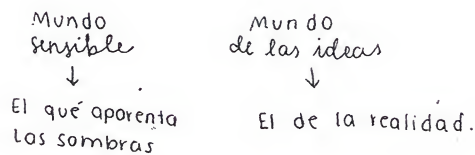 Mundo
sensible
↓
El qué aparenta
las sombras
Mundo
de las ideas
↓
El de la realidad.